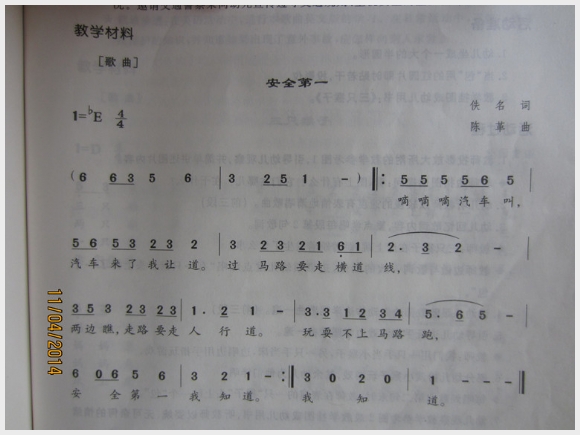 教学材料
［歌曲］
安全第一
1=♭E 4/4
佚名 词
陈革 曲
(6 63 5 6 | 3 25 1 -) ‖: 55 55 56 5 |
嘀嘀嘀汽车叫，
56 53 23 2 | 3 23 21 61 | 2. 3 2 - |
汽车来了我让道。过马路要走横道线，
35 3 23 23 | 1. 2 1 - | 3.3 12 34 | 5. 65 - |
两边瞧，走路要走人行道。玩耍不上马路跑，
6 06 56 6 | 3 2 1 - :‖ 3 0 2 0 | 1 - - - ‖
安全第一我知道。我知道。
11/04/2014